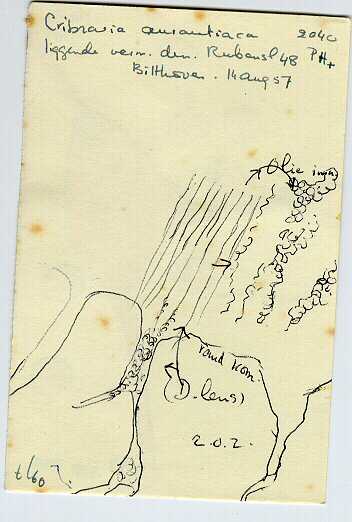 Cribraria aurantiaca 2040
liggende verm. den. Rubensl 48 PH+
Bilthoven. 14 aug 57
Olie imm
rond kom.
D. lens)
2.0.2.
t/60